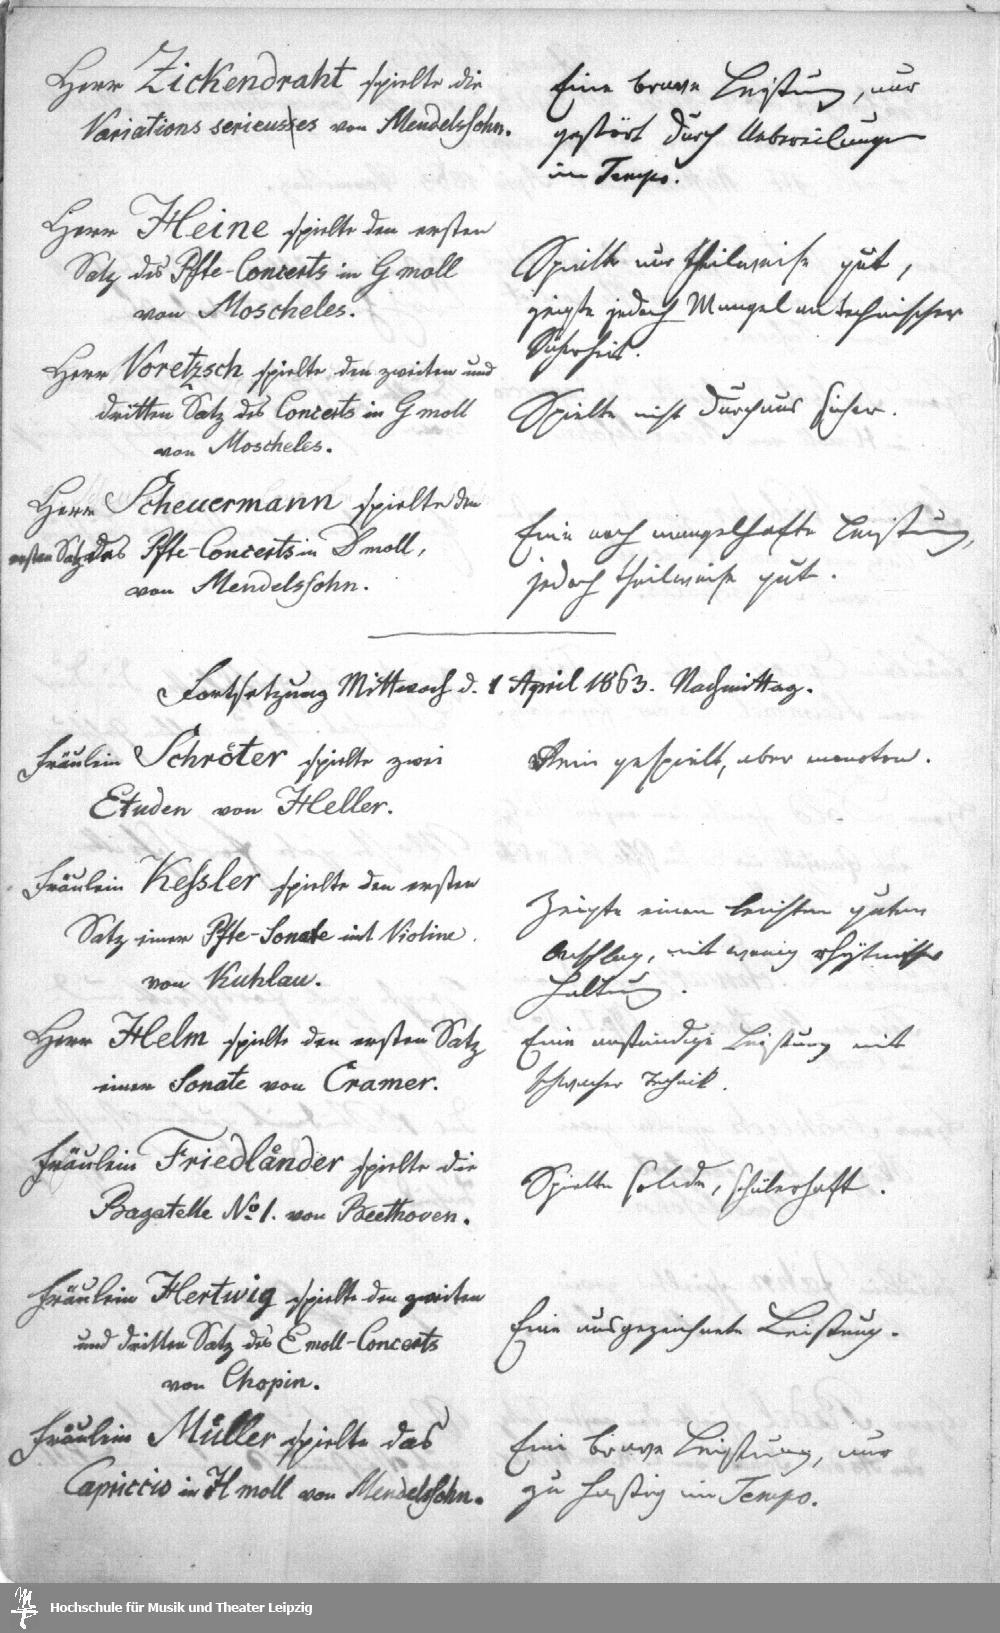 Herr Zickendraht spielte die
Variations serieuses von Mendelssohn.
Eine brave Leistung, nur
gestört durch Uebereilungen
im Tempo.
Herr Heine spielte den ersten
Satz des Pfte-Concerts in G moll
von Moscheles.
Spielte nur theilweise gut,
zeigte jedoch Mangel an technischer
Sicherheit.
Herr Voretzsch spielte den zweiten und
dritten Satz des Concerts in G moll
von Moscheles.
Spielte nicht durchaus sicher.
Herr Scheuermann spielte den
ersten Satz des Pfte-Concerts in D moll,
von Mendelssohn.
Eine noch mangelhafte Leistung,
jedoch theilweise gut.
Fortsetzung Mittwoch d. 1 April 1863. Nachmittag.
Fräulein Schröter spielte zwei
Etuden von Heller.
Rein gespielt, aber monoton.
Fräulein Kessler spielte den ersten
Satz einer Pfte-Sonate mit Violine
von Kuhlau.
Zeigte einen leichten guten
Anschlag, mit wenig
Haltung.
Herr Helm spielte den ersten Satz
einer Sonate von Cramer.
Eine anständige Leistung mit
schwacher Technik.
Fräulein Friedländer spielte die
Bagatelle No 1. von Beethoven.
Spielte solide, schülerhaft.
Fräulein Hertwig spielte den zweiten
und dritten Satz des E moll-Concerts
von Chopin.
Eine ausgezeichnete Leistung.
Fräulein Müller spielte das
Capriccio in H moll von Mendelssohn.
Eine brave Leistung, nur
zu hastig im Tempo.
Hochschule für Musik und Theater Leipzig